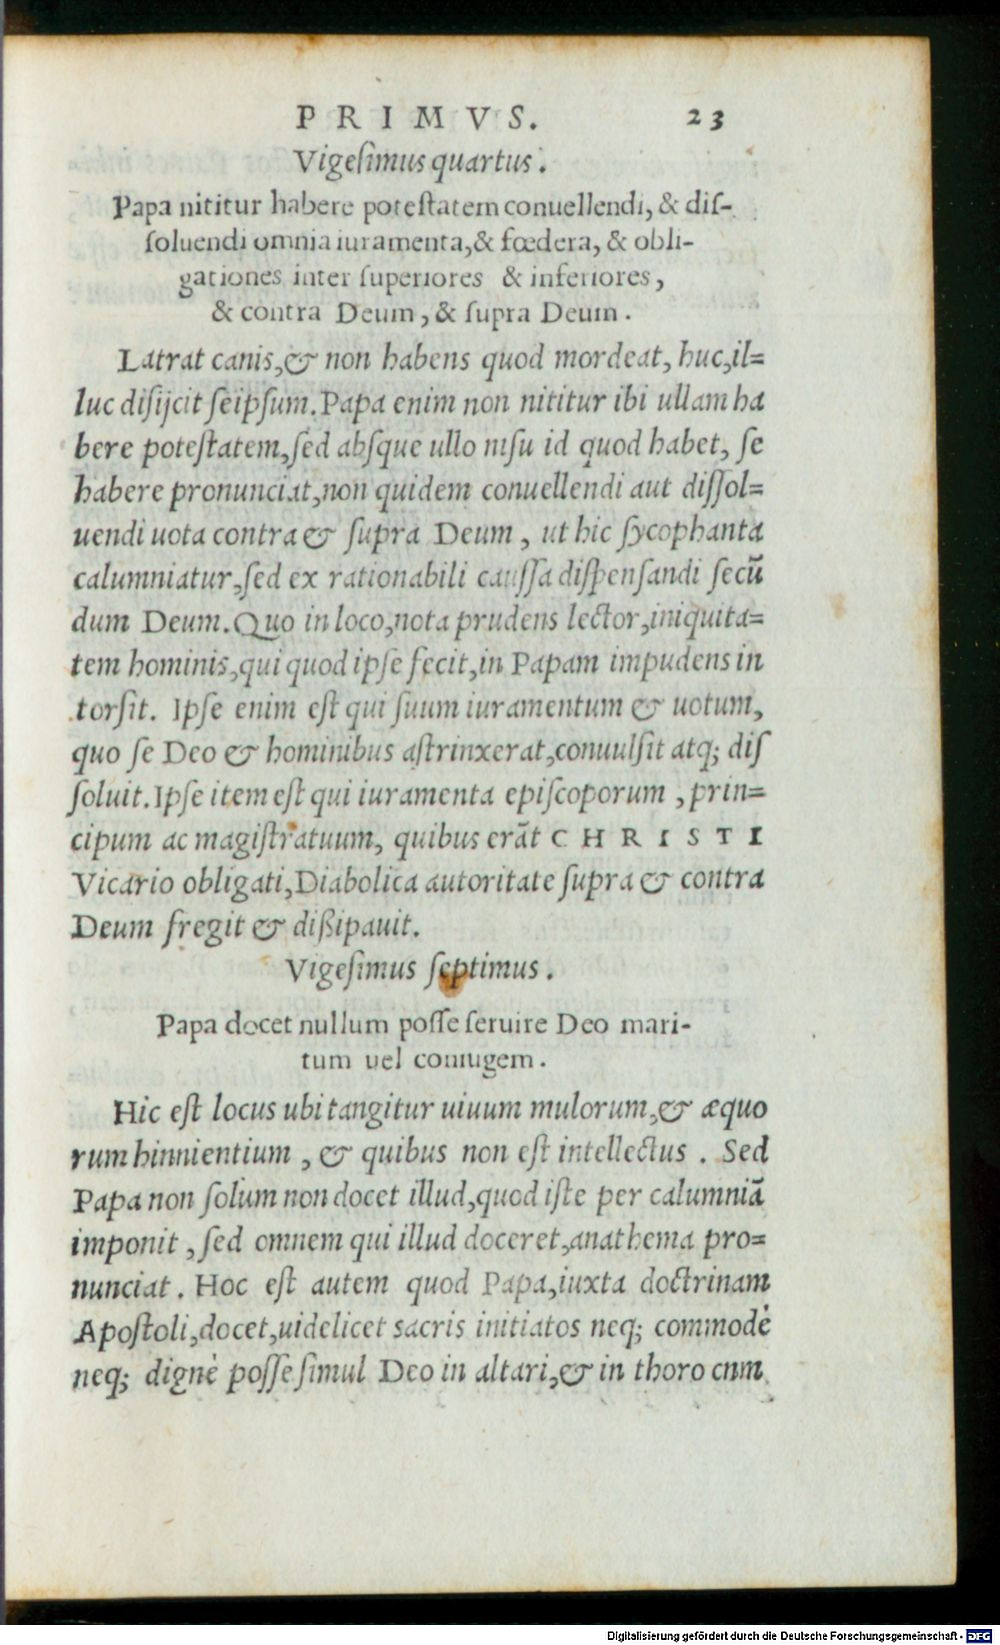 PRIMVS. 23
Vigesimus quartus.
Papa nititur habere potestatem conuellendi, & dis-
soluendi omnia iuramenta, & fœdera, & obli-
gationes inter superiores & inferiores,
& contra Deum, & supra Deum.
Latrat canis, & non habens quod mordeat, huc, il=
luc disijcit seipsum. Papa enim non nititur ibi ullam ha
bere potestatem, sed absque ullo nisu id quod habet, se
habere pronunciat, non quidem conuellendi aut dissol=
uendi uota contra & supra Deum, ut hic sycophanta
calumniatur, sed ex rationabili caussa dispensandi secū
dum Deum. Quo in loco, nota prudens lector, iniquita=
tem hominis, qui quod ipse fecit, in Papam impudens in
torsit. Ipse enim est qui suum iuramentum & uotum,
quo se Deo & hominibus astrinxerat, conuulsit atq; dis
soluit. Ipse item est qui iuramenta episcoporum, prin=
cipum ac magistratuum, quibus erāt CHRISTI
Vicario obligati, Diabolica autoritate supra & contra
Deum fregit & dißipauit.
Vigesimus septimus.
Papa docet nullum posse seruire Deo mari-
tum uel coniugem.
Hic est locus ubi tangitur uiuum mulorum, & æquo
rum hinnientium, & quibus non est intellectus. Sed
Papa non solùm non docet illud, quod iste per calumniā
imponit, sed omnem qui illud doceret, anathema pro=
nunciat. Hoc est autem quod Papa, iuxta doctrinam
Apostoli, docet, uidelicet sacris initiatos neq; commodè
neq; dignè posse simul Deo in altari, & in thoro cnm
Digitalisierung gefördert durch die Deutsche Forschungsgemeinschaft - DFG